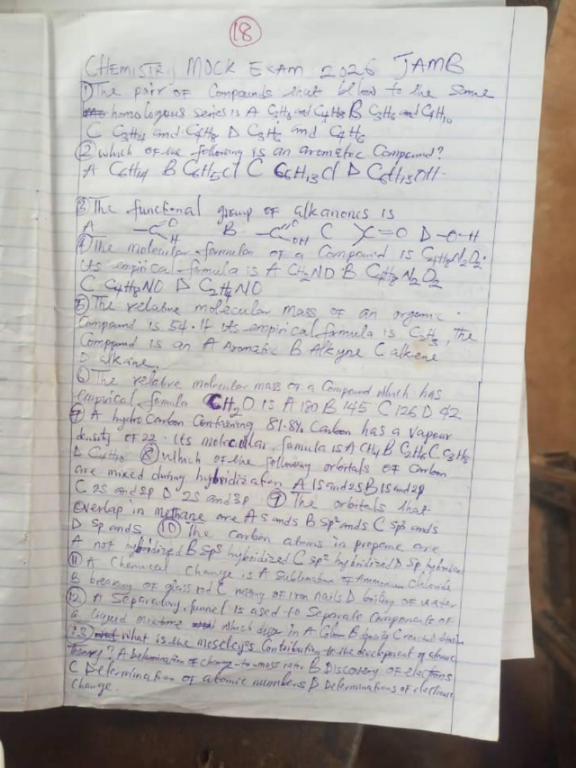 18
CHEMISTRY MOCK EXAM 2026 JAMB
① The pair of Compounds that below to the same
homologous series is A C₂H₆ and C₄H₈ B C₃H₈ and C₄H₁₀
C and C₄H₈ D C₃H₈ and C₄H₆
② which of the following is an arometic Compound?
A B C₆H₅Cl C C₆H₁₃Cl D C₆H₁₃OH
3 The functional group of alkanones is
A -C O H B -C O OH C C=O D -O-H
4 The molecular formular of a Compound is C₄H₈N₂O₂.
its empirical formula is A CH₂NO B C₄H₈N₂O₂
C C₄H₈NO D C₂H₄NO
⑤ The relative molecular mass of an organic
Compound is 54. If its empirical formula is C₂H₃, the
Compound is an A Aromatic B Alkyne C alkene
D alkane,
⑥ The relative molecular mass of a Compound which has
empirical formula CH₂O is A 180 B 145 C 126 D 42
⑦ A hydro Carbon Containing 81.8% Carbon has a vapour
density of 22. its molecular formula is A CH₄ B C₂H₆ C C₃H₈
D C₄H₁₀ ⑧ Which of the following orbitals of Carbon
are mixed during hybridization A 1S and 2S B 1S and 2p
C 2S and 2p D 2S and 3p ⑨ The orbitals that
overlap in methane are A S and S B Sp² and S C Sp³ and S
D Sp and S ⑩ The carbon atoms in propene are
A not hybridized B Sp³ hybridized C sp² hybridized D Sp hybridized
⑪ A Chemical Change is A Sublimation of Ammonium Chloride
B breaking of glass rod C rusting of iron nails D boiling of water
⑫ A Separating funnel is used to Separate Components of
a liquid mixture which in A B C D
13 what is the moseley's Contribution to the development of atomic
theory? A Determination of charge to mass ratio B Discovery of electrons
C Determination of atomic numbers D Determinations of electronic
Change.